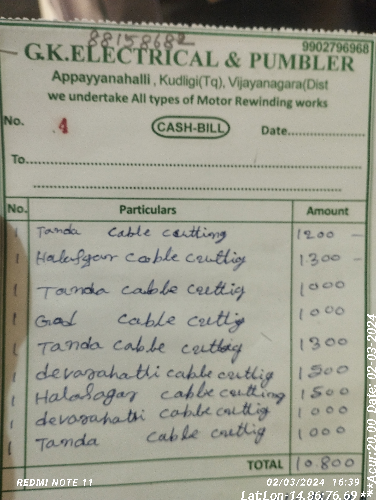 88158682
9902796968
G.K.ELECTRICAL & PUMBLER
Appayyanahalli, Kudligi(Tq), Vijayanagara(Dist
we undertake All types of Motor Rewinding works
No. 4 CASH-BILL Date...............
To...............
No. Particulars Amount
1 Tanda cable cutting 1200 -
1 Halasgar cable cuttig 1300 -
1 Tanda cable cuttig 1000
1 God cable cuttig 1000
1 Tanda cabbe cuttig 1300
1 devarahatti cable cuttig 1500
1 Halasagar cable cutting 1500
1 devarahatti cable cuttig 1000
1 Tanda cable cuttig 1000
TOTAL 10.800
REDMI NOTE 11 02/03/2024 16:39
LatLon-14.86:76.69
**Acur:20.00 Date: 02-03-2024